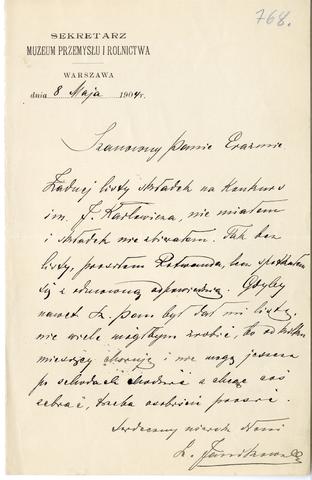 768.
SEKRETARZ
MUZEUM PRZEMYSŁU I ROLNICTWA
WARSZAWA
dnia 8 Maja 1904 r.
Szanowny Panie Erazmie
Żadnej listy składek na Konkurs
im. J. Karłowicza, nie miałem
i składek nie zbierałem. Tak bez
listy, prosiłem Rotwanda, lecz spotkałem
się z odmowną odpowiedzią. Gdyby
nawet Sz. Pan był dał mi listę,
nie wiele mógłbym zrobić, bo od kilku
miesięcy choruję i nie mogę jeszcze
po schodach chodzić a chcąc coś
zebrać, trzeba osobiście prosić.
Serdeczny uścisk dłoni